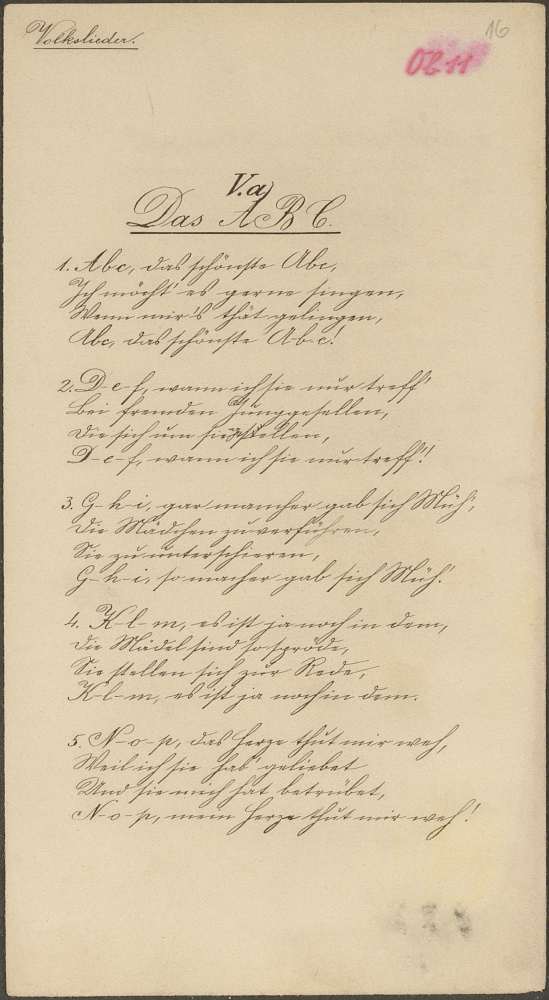 Volkslieder.
16
Ob 11
V.a)
Das A B C.
1. Abc, das schönste Abc,
Ich möcht' es gerne singen,
Wenn mir's thät gelingen,
Abc, das schönste A-b-c!
2. D-e-f, wann ich sie nur treff'
Bei fremden Junggesellen,
Die sich um sie stellen,
D-e-f, wann ich sie nur treff'!
3. G-h-i, gar mancher gab sich Müh',
Die Mädchen zu verführen,
Sie zu
G-h-i, so macher gab sich Müh'.
4. K-l-m, es ist ja noch in dem,
Die Mädel sind so spröde,
Sie stellen sich zur Rede,
K-l-m, es ist ja noch in dem.
5. N-o-p, das Herze thut mir weh,
Weil ich sie hab' geliebet
Und sie mich hat betrübet,
N-o-p, mein Herze thut mir weh!